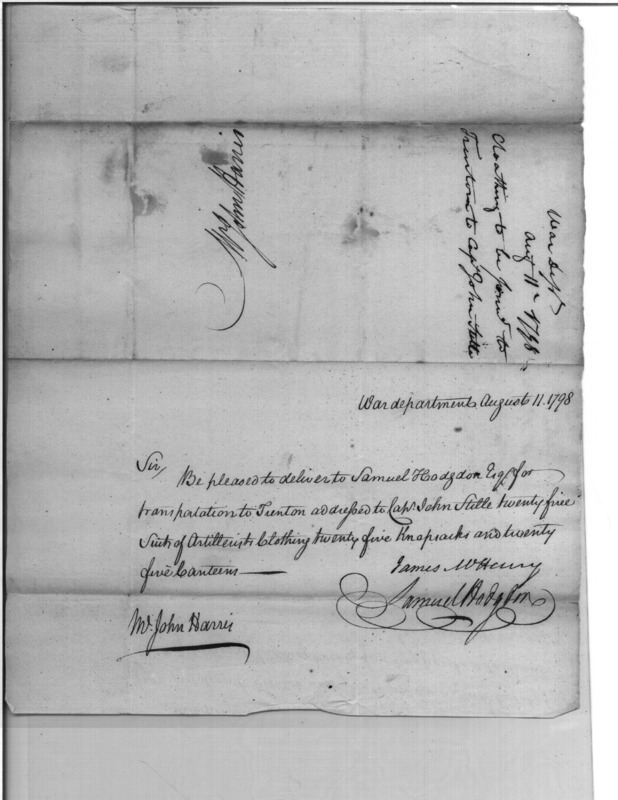 War Dept
Aug 11th 1798
Cloathing to be forwd to
Trentown to Capt John Stille
Mr John Harris
War department August 11. 1798
Sir,
Be pleased to deliver to Samuel Hodgdon Esq. for
transpiration to Trenton addressed to Capt. John Stille twenty five
Suits of Artillerists Clothing twenty five Knapsacks and twenty
five Canteens —
James McHenry
Samuel Hodgdon
Mr. John Harris